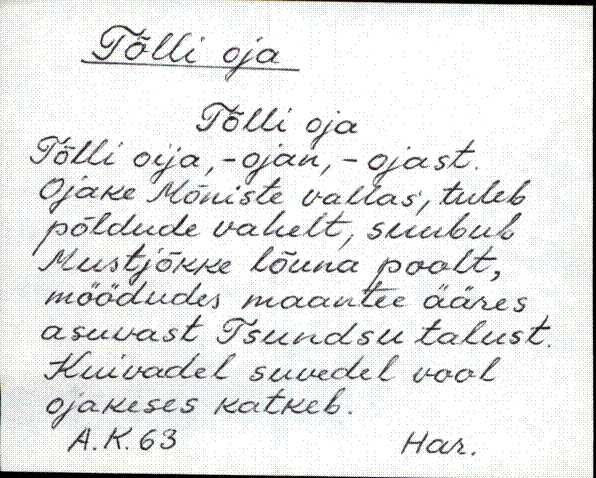 Tõlli oja
Tõlli oja
Tõlli oija, -ojan, -ojast.
Ojake Mõniste vallas, tuleb
põldude vahelt, suubub
Mustjõkke lõuna poolt,
möödudes maantee ääres
asuvast Tsundsu talust.
Kuivadel suvedel vool
ojakeses katkeb.
A.K. 63 Har.